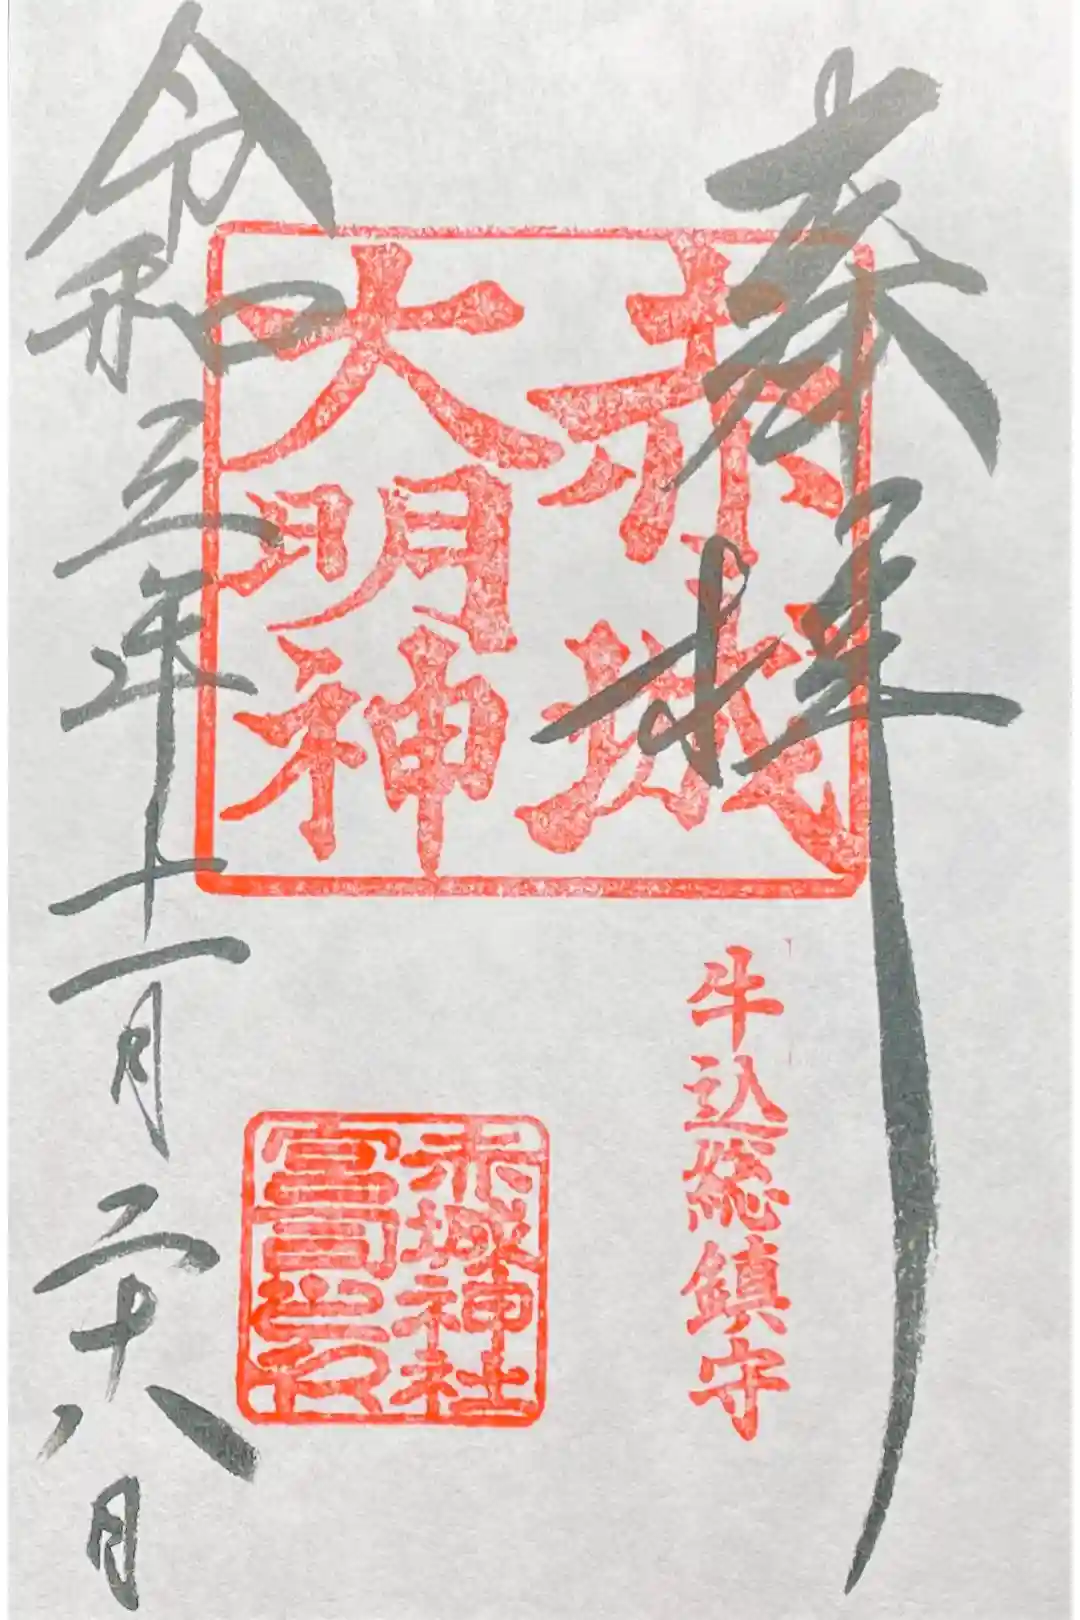 奉拝
赤城
大明神
牛込総鎮守
赤城神社
宮司之印
令和五年十一月二十八日